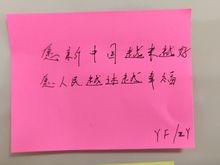 愿新中国越来越好
愿人民越来越幸福
YF/ZY